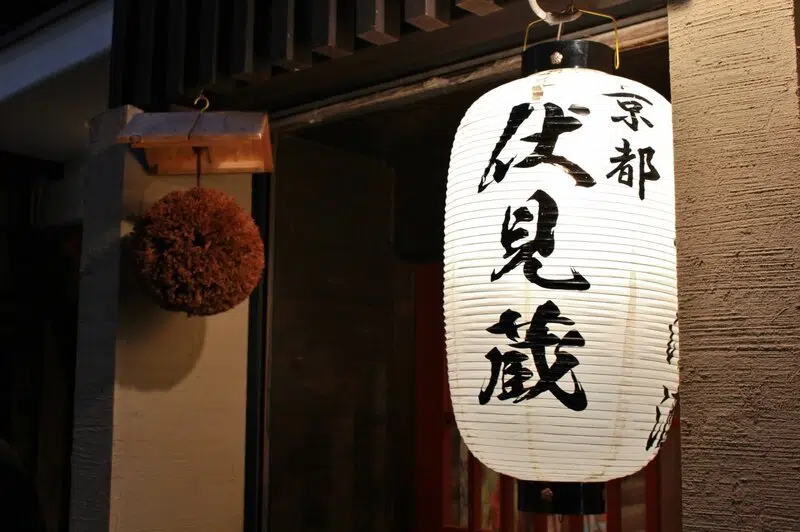 京都
伏見蔵